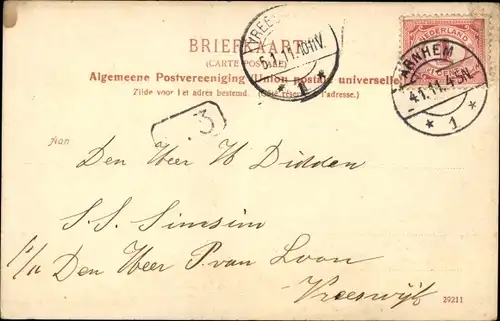 BRIEFKAART
(CARTE POSTALE)
Algemeene Postvereeniging (Union postale universelle)
Zijde voor het adres bestemd. (Côté réservé à l'adresse.)
VREES
5.1.11.10-11V.
* 1 *
NEDERLAND
CENT
ARNHEM
4.1.11. 4-5N.
* 1 *
3
Aan
Den Heer W Didden
S. S. Simsim
p/a Den Heer P. van Loon
Vreeswijk
29211